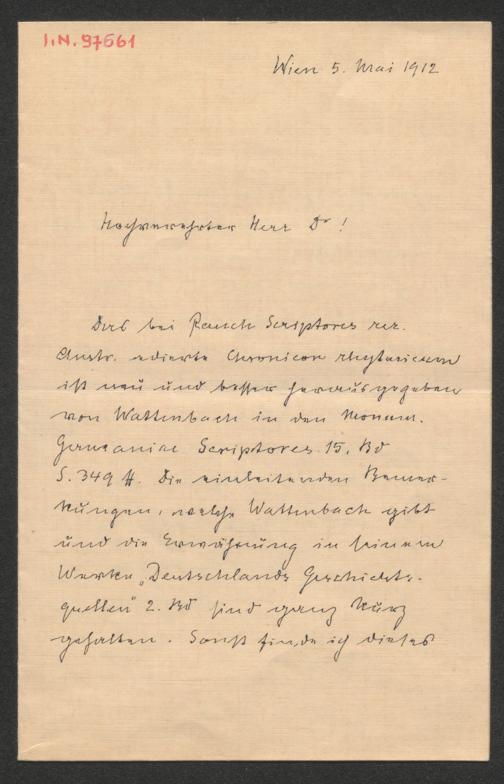 I.N. 97661
Wien 5. Mai 1912
Hochverehrter Herr Dr!
Das bei Rauch Scriptores rer.
Austr. edierte Chronicon rhytmicum
ist neu und besser herausgegeben
von Wattenbach in den Monum.
Germaniae Scriptores 15. Bd
S. 349 ff. Die einleitenden Bemer-
kungen, welche Wattenbach gibt
und die Erwähnung in seinem
Werke „Deutschlands Geschichts-
quellen" 2. Bd sind ganz kurz
gehalten. Sonst finde ich dieses